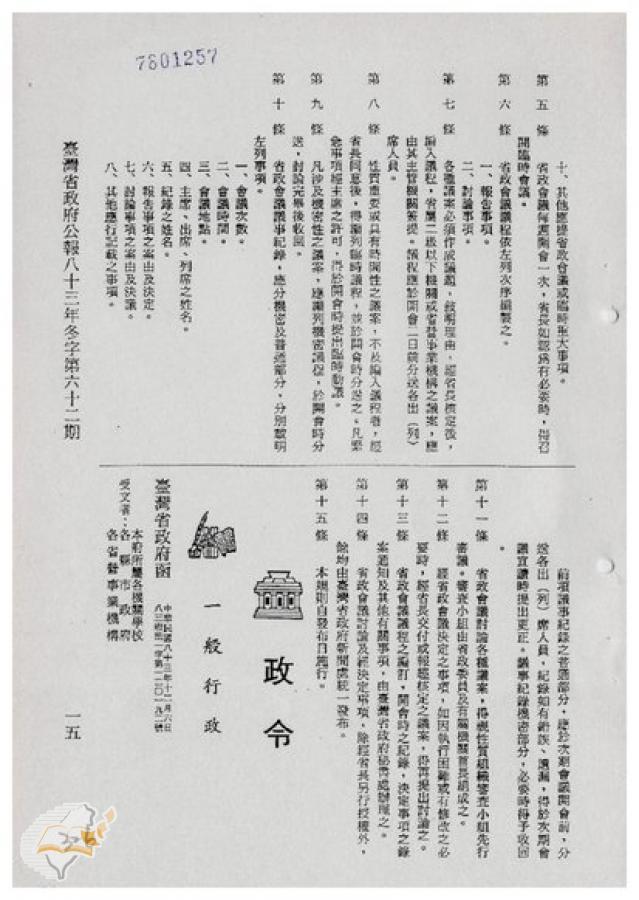 7801257
十、其他應提省政會議或臨時重大事項。
第五條　省政會議每週開會一次，省長如認為有必要時，得召
開臨時會議。
第六條　省政會議議程依左列次序編製之。
一、報告事項。
二、討論事項。
第七條　各種議案必須作成議題，敍明理由，經省長核定後，
編入議程，省屬二級以下機關或省營事業機構之議案，應
由其主管機關簽提。議程應於開會二日前分送各出（列）
席人員。
第八條　性質重要或具有時間性之議案，不及編入議程者，經
省長同意後，得編列臨時議程，並於開會時分送之。凡緊
急事項經主席之許可，得於開會時提出臨時動議。
第九條　凡涉及機密性之議案，應編列機密議程，於開會時分
送，討論完畢後收回。
第十條　省政會議議事紀錄，應分機密及普通部分，分別載明
左列事項。
一、會議次數。
二、會議時間。
三、會議地點。
四、主席、出席、列席之姓名。
五、紀錄之姓名。
六、報告事項之案由及決定。
七、討論事項之案由及決議。
八、其他應行記載之事項。
臺灣省政府公報八十三年冬字第六十二期
前項議事紀錄之普通部分，應於次期會議開會前，分
送各出（列）席人員，紀錄如有錯誤、遺漏，得於次期會
議宣讀時提出更正。議事紀錄機密部分，必要時得予收回
。
第十一條　省政會議討論各種議案，得視性質組織審查小組先行
審議。審查小組由省政委員及有關機關首長組成之。
第十二條　經省政會議決定之事項，如因執行困難或有修改之必
要時，經省長交付或報經核定之議案，得再提出討論之。
第十三條　省政會議議程之編訂，開會時之紀錄，決定事項之錄
案通知及其他有關事項，由臺灣省政府秘書處辦理之。
第十四條　省政會議討論及經決定事項，除經省長另行授權外，
餘均由臺灣省政府新聞處統一發布。
第十五條　本規則自發布日施行。
政令
一般行政
臺灣省政府函
中華民國八十三年十二月六日
受文者：
本府所屬各機關學校
各縣市政府
各省營事業機構
一五